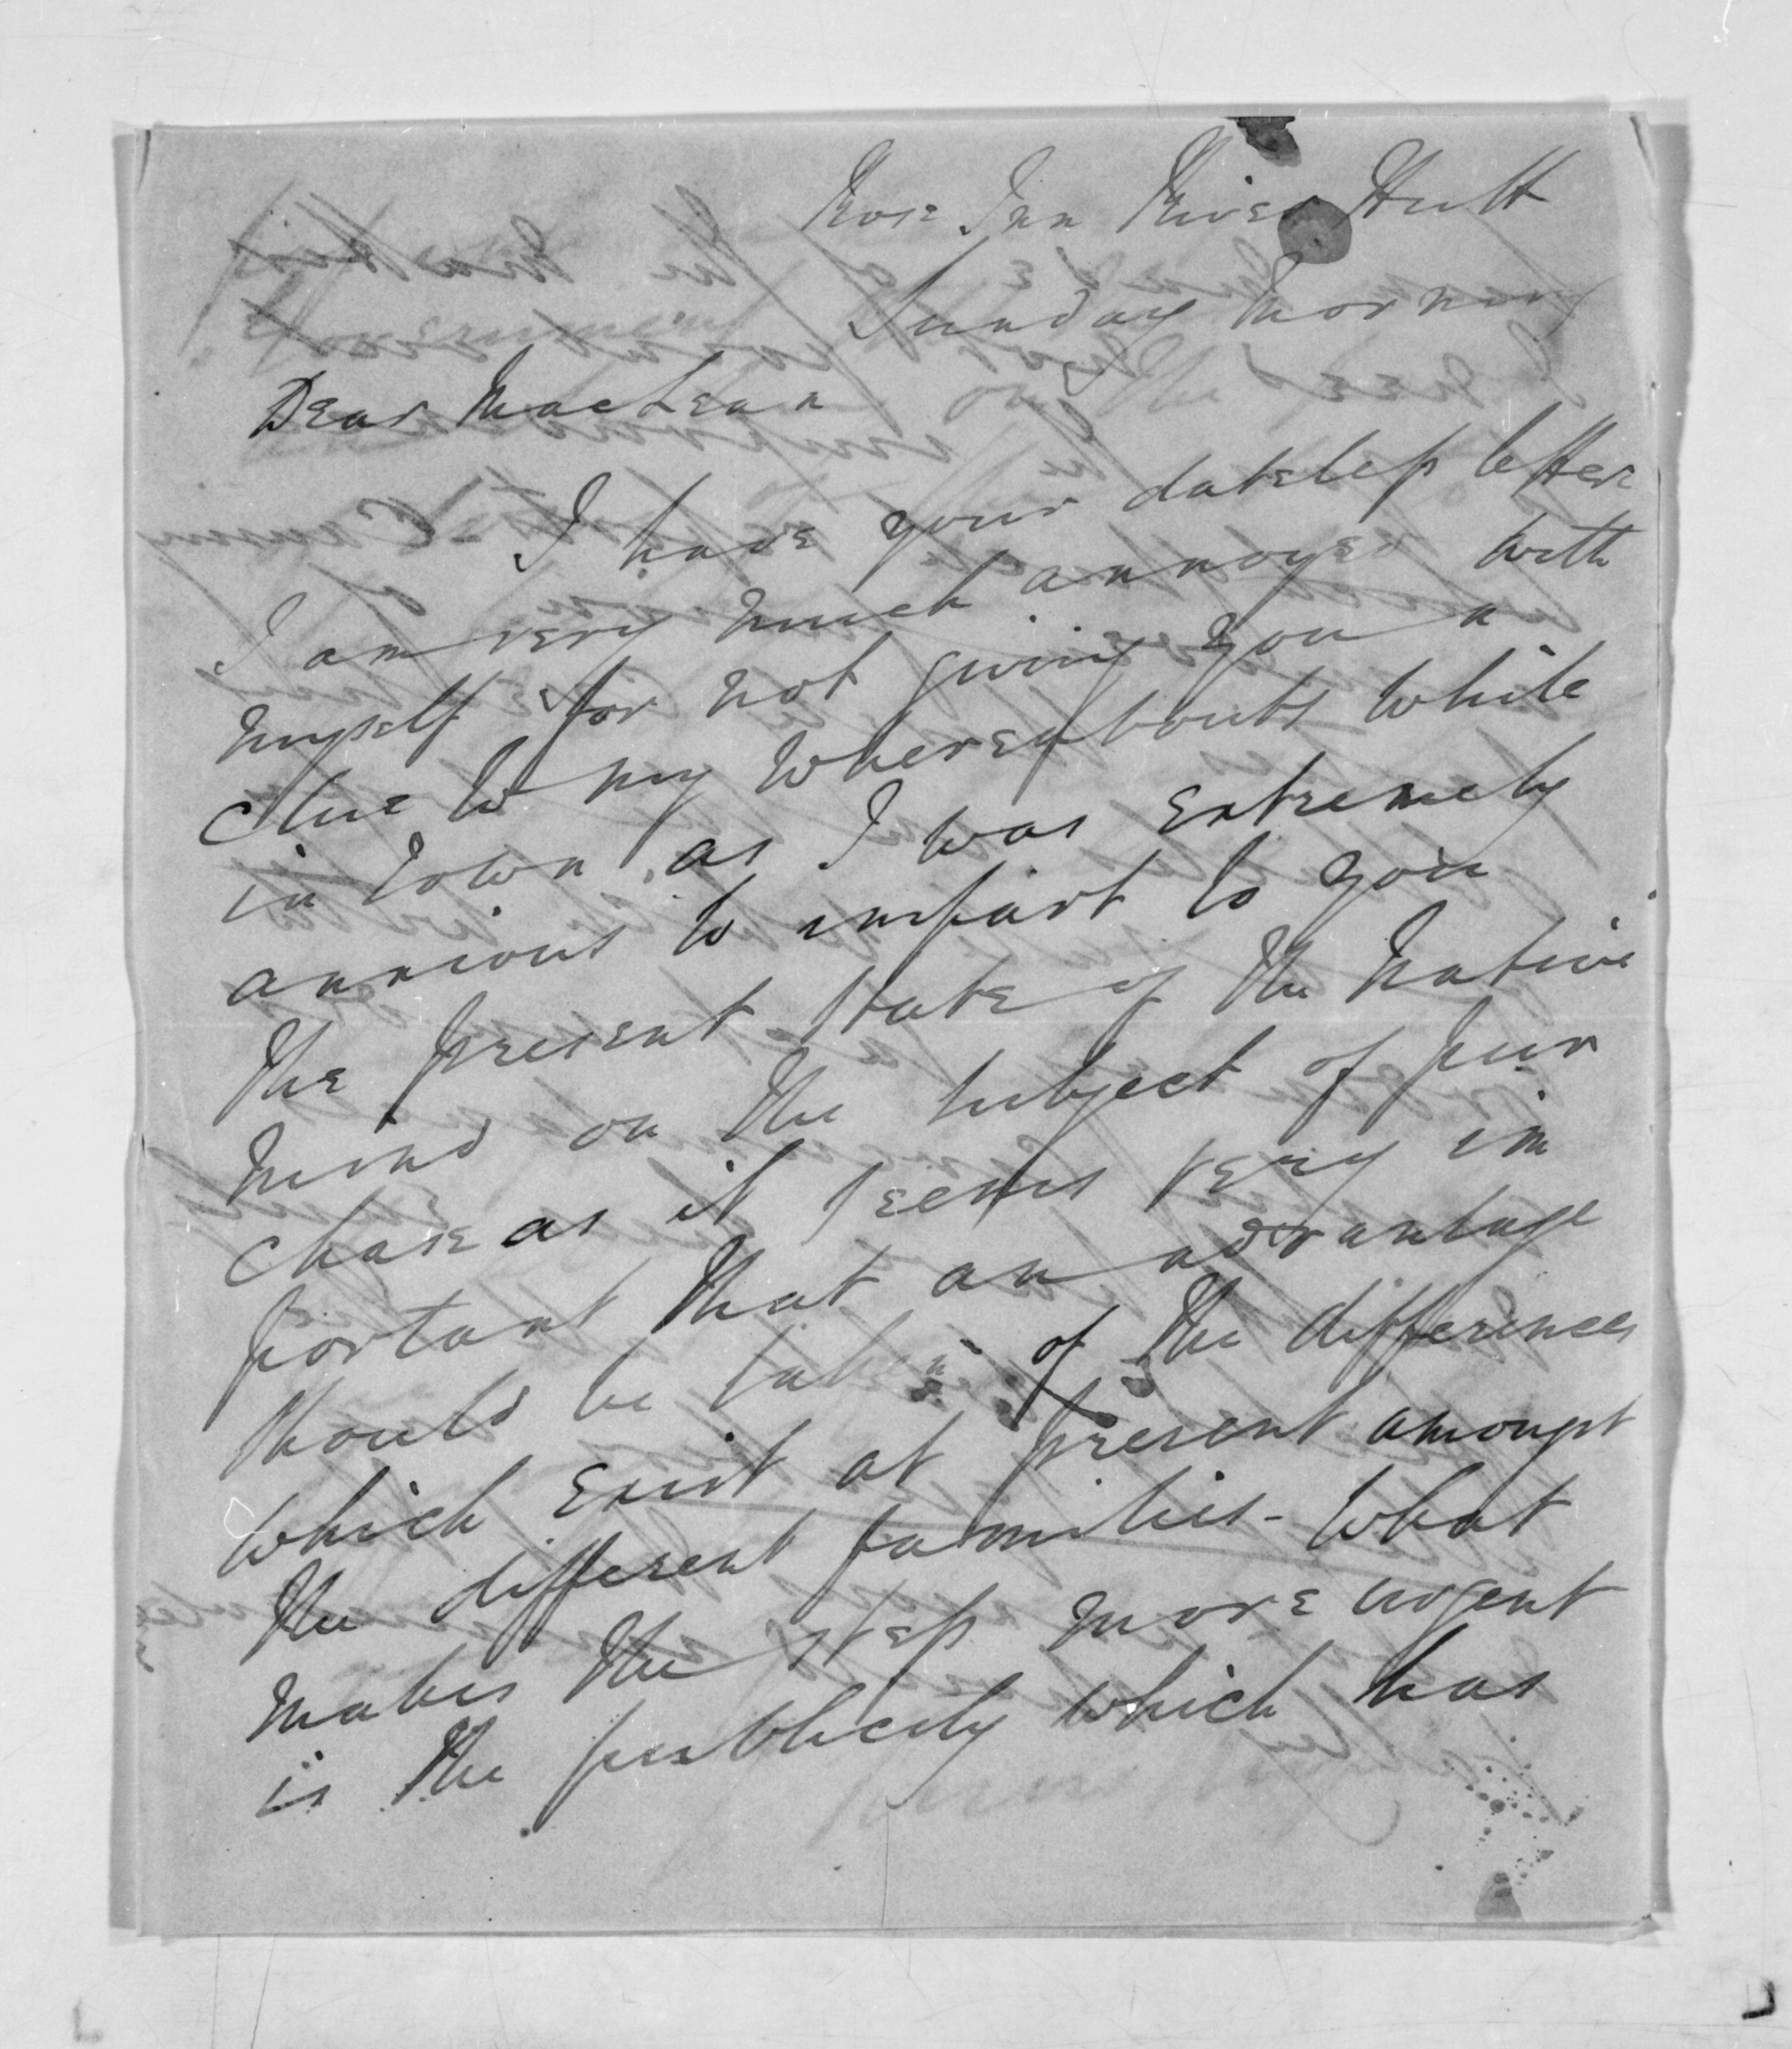 Rose Inn River Hutt
Sunday Morning
Dear MacLean
I have your dateless letter
I am very much annoyed with
myself for not giving you a
clue to my whereabouts while
in town, as I was extremely
anxious to impart to you
the present state of the Native
mind on the subject of pur
chase as it seems very im
portant that an advantage
should be taken of the differences
which exist at present amongst
the different families - What
makes the step more urgent
is the publicity which has